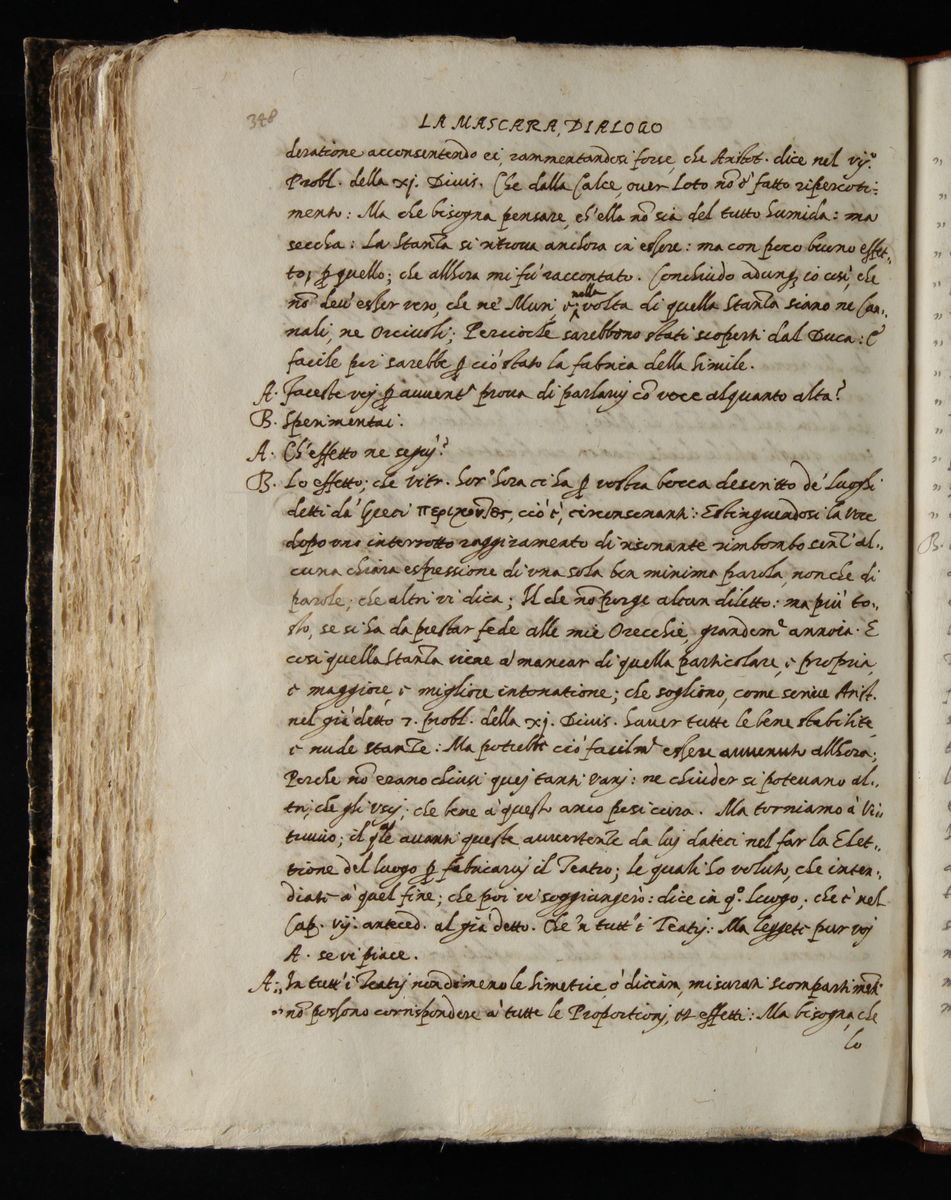 348
LA MASCARA, DIALOGO
deratione acconsentendo ei, rammentandosi forse, che Aristot. dice nel vij.º
Probl. della xj. Divis. Che dalla Calce, over Loto nõ è fatto ripercoti=
mento: Ma che bisogna pensare, ch'ella nõ sia del tutto humida: ma
seccha: La Stanza si ritrova anchora in essere: ma con poco buono effet=
to; ꝑ quello; che allhora mi fù raccontato. Conchiudo adunq; io così, che
nõ dev' esser vero, che ne' Muri, ò nella volta di quella Stanza siano ne Can=
nali, ne Orcivoli; Percioche sarebbono stati scoperti dal Duca: E
facile poi sarebbe ꝑ ciò stato la fabrica della simile.
A. Faceste voj ꝑ avvent.ª prova di parlarvj cõ voce alquanto alta?
B. Sperimentai.
A. Ch'effetto ne seguì?
B. Lo effetto; che Vitr. hor' hora ci ha ꝑ vostra bocca descritto de' luoghi
detti da' Greci περιηχοῦντες, ciò è, circonsonanti: Estinguendosi la voce
dopo uno interrotto raggiramento di risonante rimbombo senz' al=
cuna chiara espressione di una sola ben minima parola, non che di
parole; che altri vi dica; Il che nõ porge alcun diletto: ma più to=
sto, se si ha da prestar fede alle mie Orecchie, grandem.e annoia. E
così quella Stanza viene à mancar di quella particolare, e propria,
e maggiore, e migliore intonatione; che sogliono, come scrive Arist.
nel già detto 7. probl. della xj. Divis. haver tutte le bene stabilite,
e nude stanze: Ma potrebbe ciò facilm.e essere avvenuto allhora;
Perche nõ erano chiusi quej tanti vani: ne chiuder si potevano al=
tri, che gli uscij; che bene à questo anco posi cura. Ma torniamo à Vi=
truvio; il q̃le avanti queste avvertenze da luj dateci nel far la Elet=
tione del luogo ꝑ fabricarvj il Teatro; le quali ho voluto, che inten=
diate à quel fine; che poi vi soggiungerò: dice in q.º luogo, che è nel
Cap. vij. anteced. al già detto. Che 'n tutt' i Teatrj: Ma leggete pur voj
A. se vi piace.
A. „ In tutt' i Teatrj nondimeno le simetrie, ò diccim, misurati scompartimẽti
„ nõ possono corrispondere à tutte le Proportionj, et effetti: Ma bisogna, che
lo